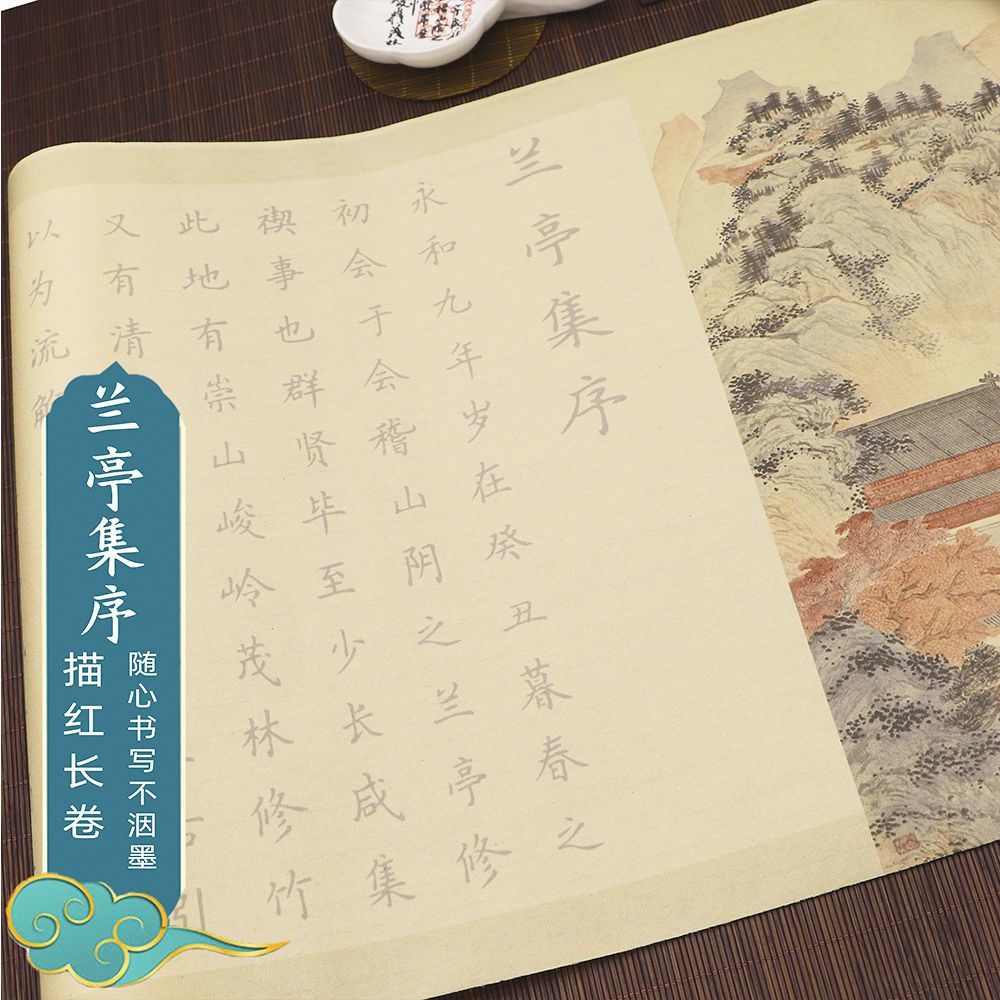 兰亭集序
永和九年岁在癸丑暮春之
初会于会稽山阴之兰亭修
禊事也群贤毕至少长咸集
此地有崇山峻岭茂林修竹
又有清
引
以为流
兰亭集序
随心书写不洇墨
描红长卷